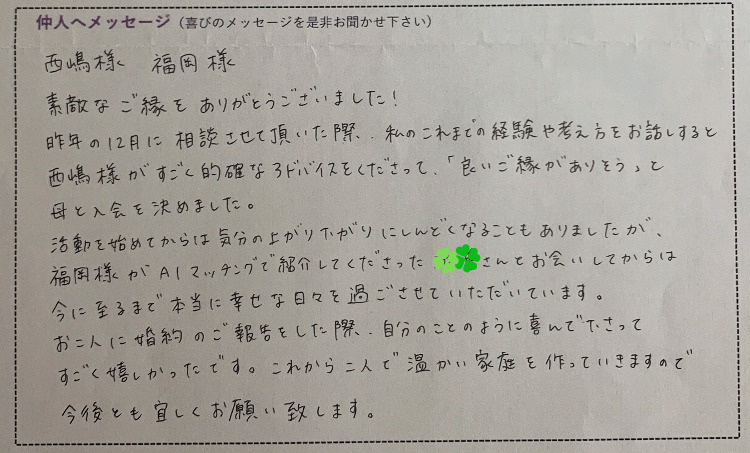 仲人へメッセージ（喜びのメッセージを是非お聞かせ下さい）
西嶋様 福岡様
素敵なご縁をありがとうございました！
昨年の12月に相談させて頂いた際、私のこれまでの経験や考え方をお話しすると
西嶋様がすごく的確なアドバイスをくださって、「良いご縁がありそう」と
母と入会を決めました。
活動を始めてからは気分の上がり下がりにしんどくなることもありましたが、
福岡様がAIマッチングで紹介してくださった さんとお会いしてからは
今に至るまで本当に幸せな日々を過ごさせていただいています。
お二人に婚約のご報告をした際、自分のことのように喜んで下さって
すごく嬉しかったです。これから二人で温かい家庭を作っていきますので
今後とも宜しくお願い致します。